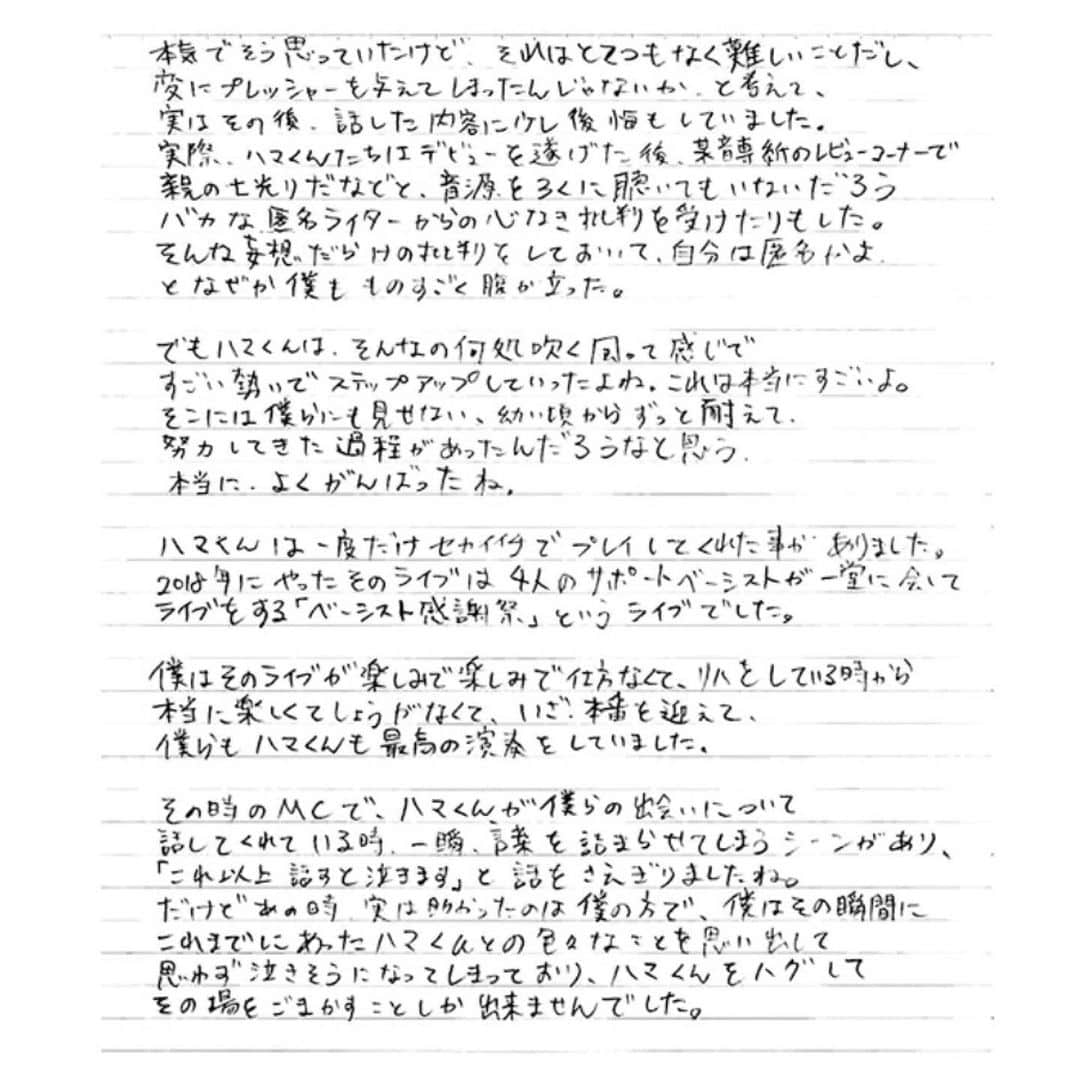 本気でそう思っていたけど、それはとてつもなく難しいことだし、
変にプレッシャーを与えてしまったんじゃないか、と考えて、
実はその後、話した内容に少し後悔もしていました。
実際、ハマくんたちはデビューを遂げた後、某音専紙のレビューコーナーで
親の七光りだなどと、音源をろくに聴いてもいないだろう
バカな匿名ライターからの心なき批判を受けたりもした。
そんな妄想だらけの批判をしておいて、自分は匿名かよ、
となぜか僕もものすごく腹が立った。
でもハマくんは、そんなの何処吹く風って感じで
すごい勢いでステップアップしていったよね。これは本当にすごいよ。
そこには僕らにも見せない、幼い頃からずっと耐えて、
努力してきた過程があったんだろうなと思う。
本当に、よくがんばったね。
ハマくんは一度だけセカイイチでプレイしてくれた事がありました。
2018年にやったそのライブは4人のサポートベーシストが一堂に会して
ライブをする「ベーシスト感謝祭」というライブでした。
僕はそのライブが楽しみで楽しみで仕方なくて、リハをしている時から
本当に楽しくてしょうがなくて、いざ本番を迎えて、
僕らもハマくんも最高の演奏をしていました。
その時のMCで、ハマくんが僕らの出会いについて
話してくれている時、一瞬、言葉を詰まらせてしまうシーンがあり、
「これ以上話すと泣きます」と話をさえぎりましたね。
だけどあの時、実は助かったのは僕の方で、僕はその瞬間に
これまでにあったハマくんとの色々なことを思い出して
思わず泣きそうになってしまっており、ハマくんをハグして
その場をごまかすことしか出来ませんでした。